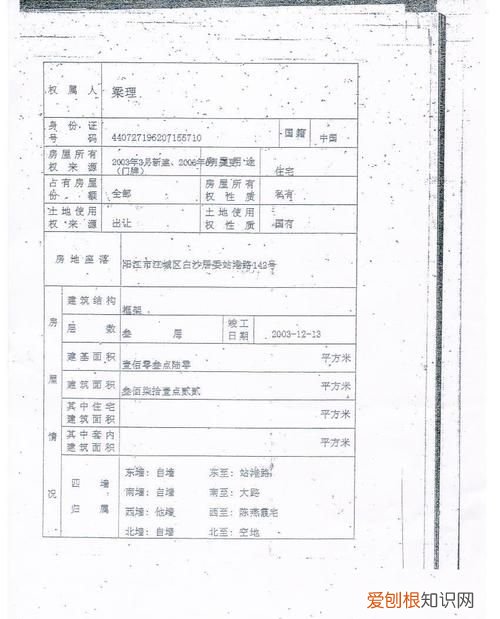 权属人 梁理
身份证号码 440727196207155710 国籍 中国
房屋所有权来源 2003年3月新建、2006年 (门牌) 房屋用途 住宅
占有房屋份额 全部 房屋所有权性质 私有
土地使用权来源 出让 土地使用权性质 国有
房地座落 阳江市江城区白沙居委站港路142号
房屋情况
建筑结构 框架
层数 叁层 竣工日期 2003-12-13
建基面积 壹佰零叁点陆零 平方米
建筑面积 叁佰柒拾壹点贰贰 平方米
其中住宅建筑面积 平方米
其中套内建筑面积 平方米
四墙归属
东墙：自墙 东至：站港路
南墙：自墙 南至：大路
西墙：他墙 西至：陈燕霞宅
北墙：自墙 北至：空地
爱刨根知识网